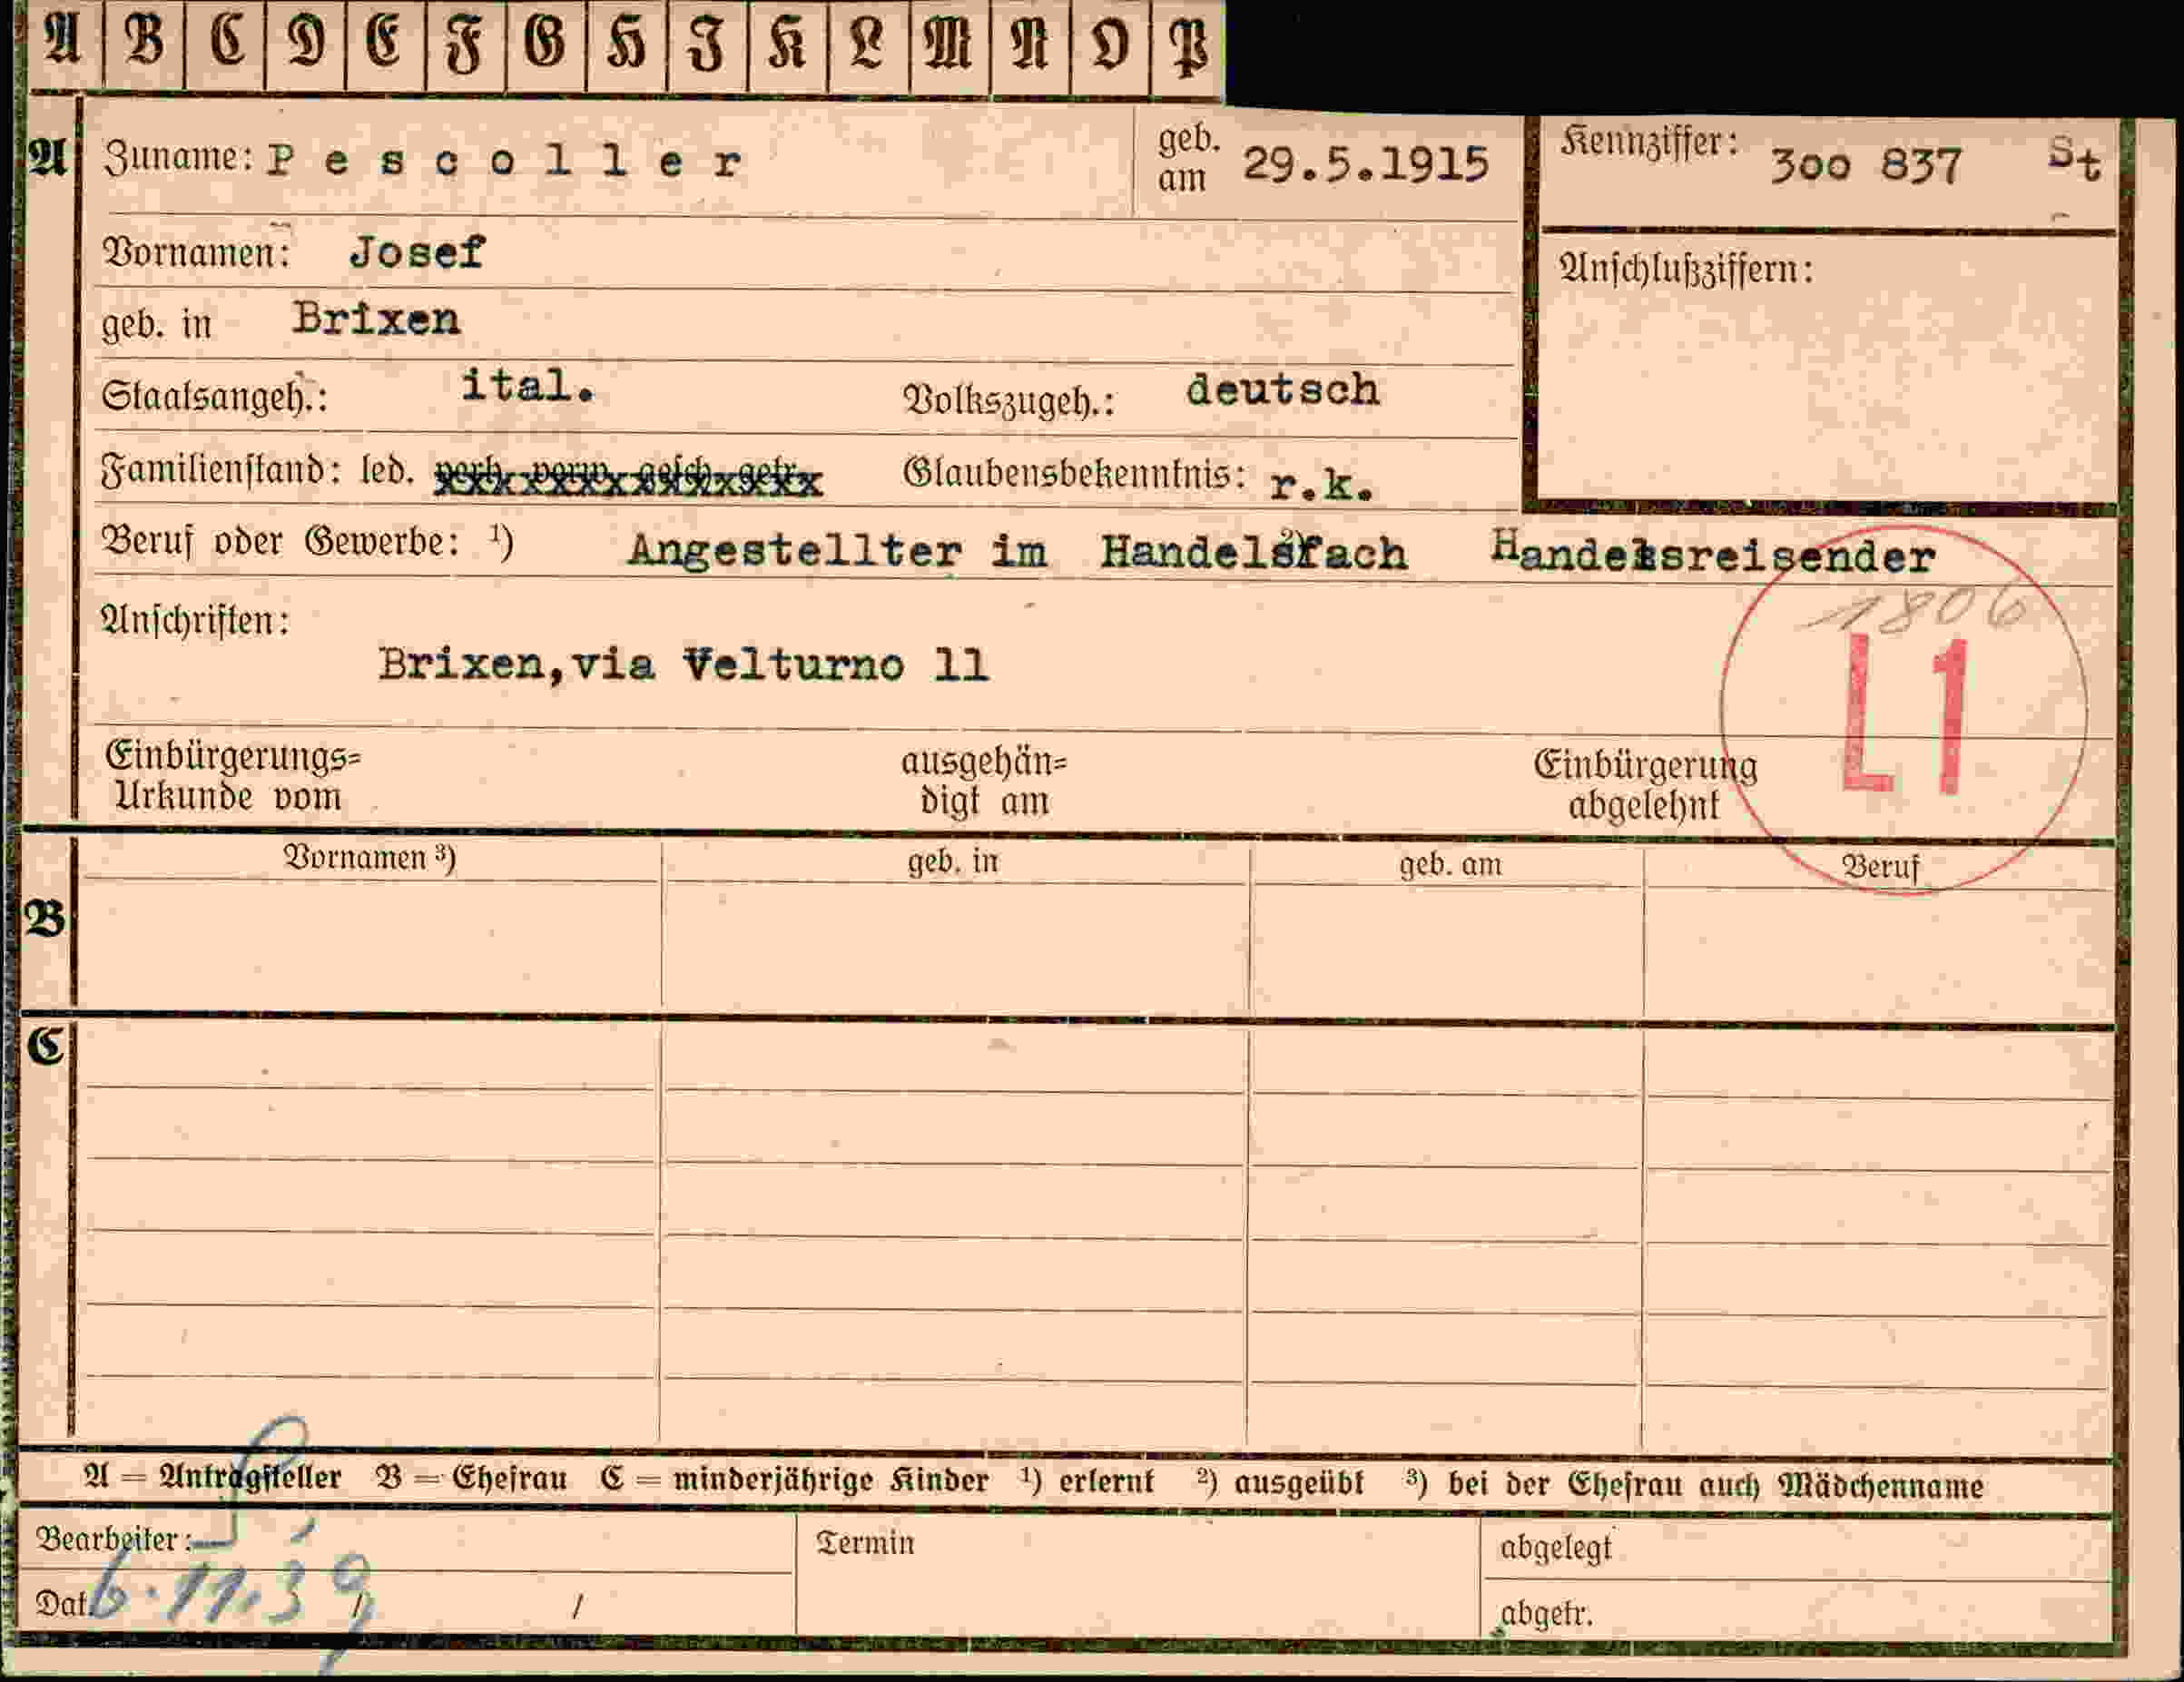 A B C D E F G H I K L M N O P
A Zuname: Pescoller geb. am 29.5.1915 Kennziffer: 300 837 St
Vornamen: Josef Anschlußziffern:
geb. in Brixen
Staatsangeh.: ital. Volkszugeh.: deutsch
Familienstand: led. verh. verw. gesch. getr. Glaubensbekenntnis: r.k.
Beruf oder Gewerbe: ¹) Angestellter im Handelsfach ²) Handelsreisender
1806
Anschriften:
Brixen,via Velturno 11
L1
Einbürgerungs= ausgehän= Einbürgerung
Urkunde vom digt am abgelehnt
Vornamen ³) geb. in geb. am Beruf
B
C
A = Antragsteller B = Ehefrau C = minderjährige Kinder ¹) erlernt ²) ausgeübt ³) bei der Ehefrau auch Mädchenname
Bearbeiter: Termin abgelegt
Dat. 6.11.39 / / abgetr.